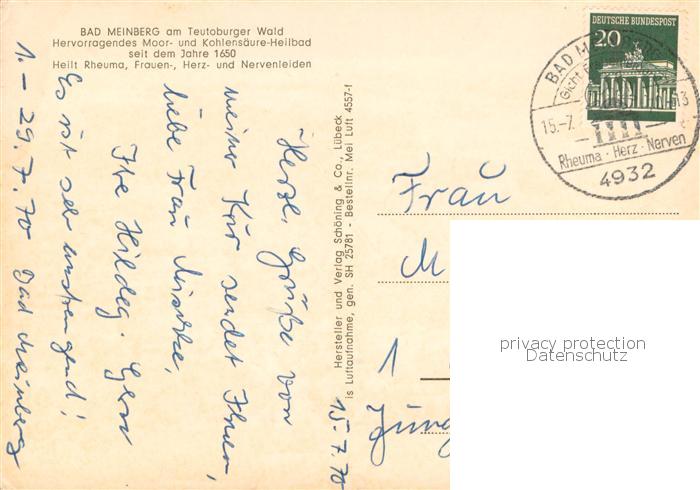 BAD MEINBERG am Teutoburger Wald
Hervorragendes Moor- und Kohlensäure-Heilbad
seit dem Jahre 1650
Heilt Rheuma, Frauen-, Herz- und Nervenleiden
Herzl. Grüße von
meiner Kur sendet Ihnen,
liebe Frau
Ihre Hildeg.
Es ist sehr anstrengend!
1. – 29. 7. 70 Bad Meinberg
15.7.70
Hersteller und Verlag Schöning & Co., Lübeck
is Luftaufnahme, gen. SH 25781 - Bestellnr. Mei Luft 4557-1
DEUTSCHE BUNDESPOST
20
BAD
Gicht
15.-7.
Rheuma · Herz · Nerven
4932
Frau
M
1
Jung
privacy protection
Datenschutz